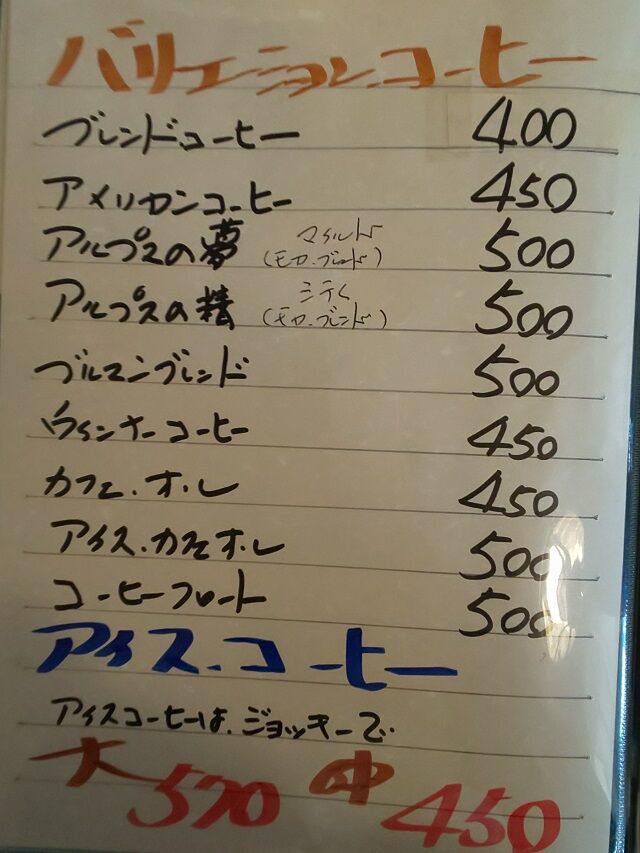 バリエーションコーヒー
ブレンドコーヒー 400
アメリカンコーヒー 450
アルプスの夢 マイルド (モカ・ブレンド) 500
アルプスの精 (モカ・ブレンド) 500
ブルマンブレンド 500
ウインナーコーヒー 450
カフェ・オ・レ 450
アイス・カフェオ・レ 500
コーヒーフロート 500
アイス・コーヒー
アイスコーヒーは、ジョッキーで
大 570 中 450